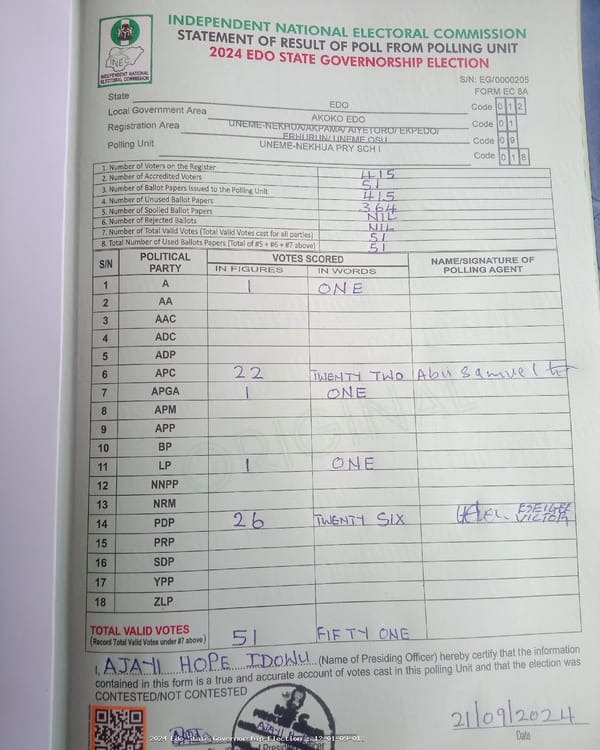 INDEPENDENT NATIONAL ELECTORAL COMMISSION
STATEMENT OF RESULT OF POLL FROM POLLING UNIT
2024 EDO STATE GOVERNORSHIP ELECTION
INEC
INDEPENDENT NATIONAL
ELECTORAL COMMISSION
S/N: EG/0000205
FORM EC 8A
State EDO Code 0 1 2
Local Government Area AKOKO EDO Code 0 1
Registration Area UNEME-NEKHUA/AKPAMA/ AIYETORO/ EKPEDO/ ERHURUN/ UNEME OSU Code 0 9
Polling Unit UNEME-NEKHUA PRY SCH I Code 0 1 8
1. Number of Voters on the Register 415
2. Number of Accredited Voters 51
3. Number of Ballot Papers Issued to the Polling Unit 415
4. Number of Unused Ballot Papers 364
5. Number of Spoiled Ballot Papers NIL
6. Number of Rejected Ballots NIL
7. Number of Total Valid Votes (Total Valid Votes cast for all parties) 51
8. Total Number of Used Ballots Papers (Total of #5 + #6 + #7 above) 51
S/N POLITICAL PARTY VOTES SCORED NAME/SIGNATURE OF POLLING AGENT
IN FIGURES IN WORDS
1 A 1 ONE
2 AA
3 AAC
4 ADC
5 ADP
6 APC 22 TWENTY TWO Abu Samuel
7 APGA 1 ONE
8 APM
9 APP
10 BP
11 LP 1 ONE
12 NNPP
13 NRM
14 PDP 26 TWENTY SIX VICTOR
15 PRP
16 SDP
17 YPP
18 ZLP
ORIGINAL
TOTAL VALID VOTES 51 FIFTY ONE
(Record Total Valid Votes under #7 above)
I, AJAYI HOPE IDOWU (Name of Presiding Officer) hereby certify that the information
contained in this form is a true and accurate account of votes cast in this polling Unit and that the election was
CONTESTED/NOT CONTESTED
21/09/2024
Date